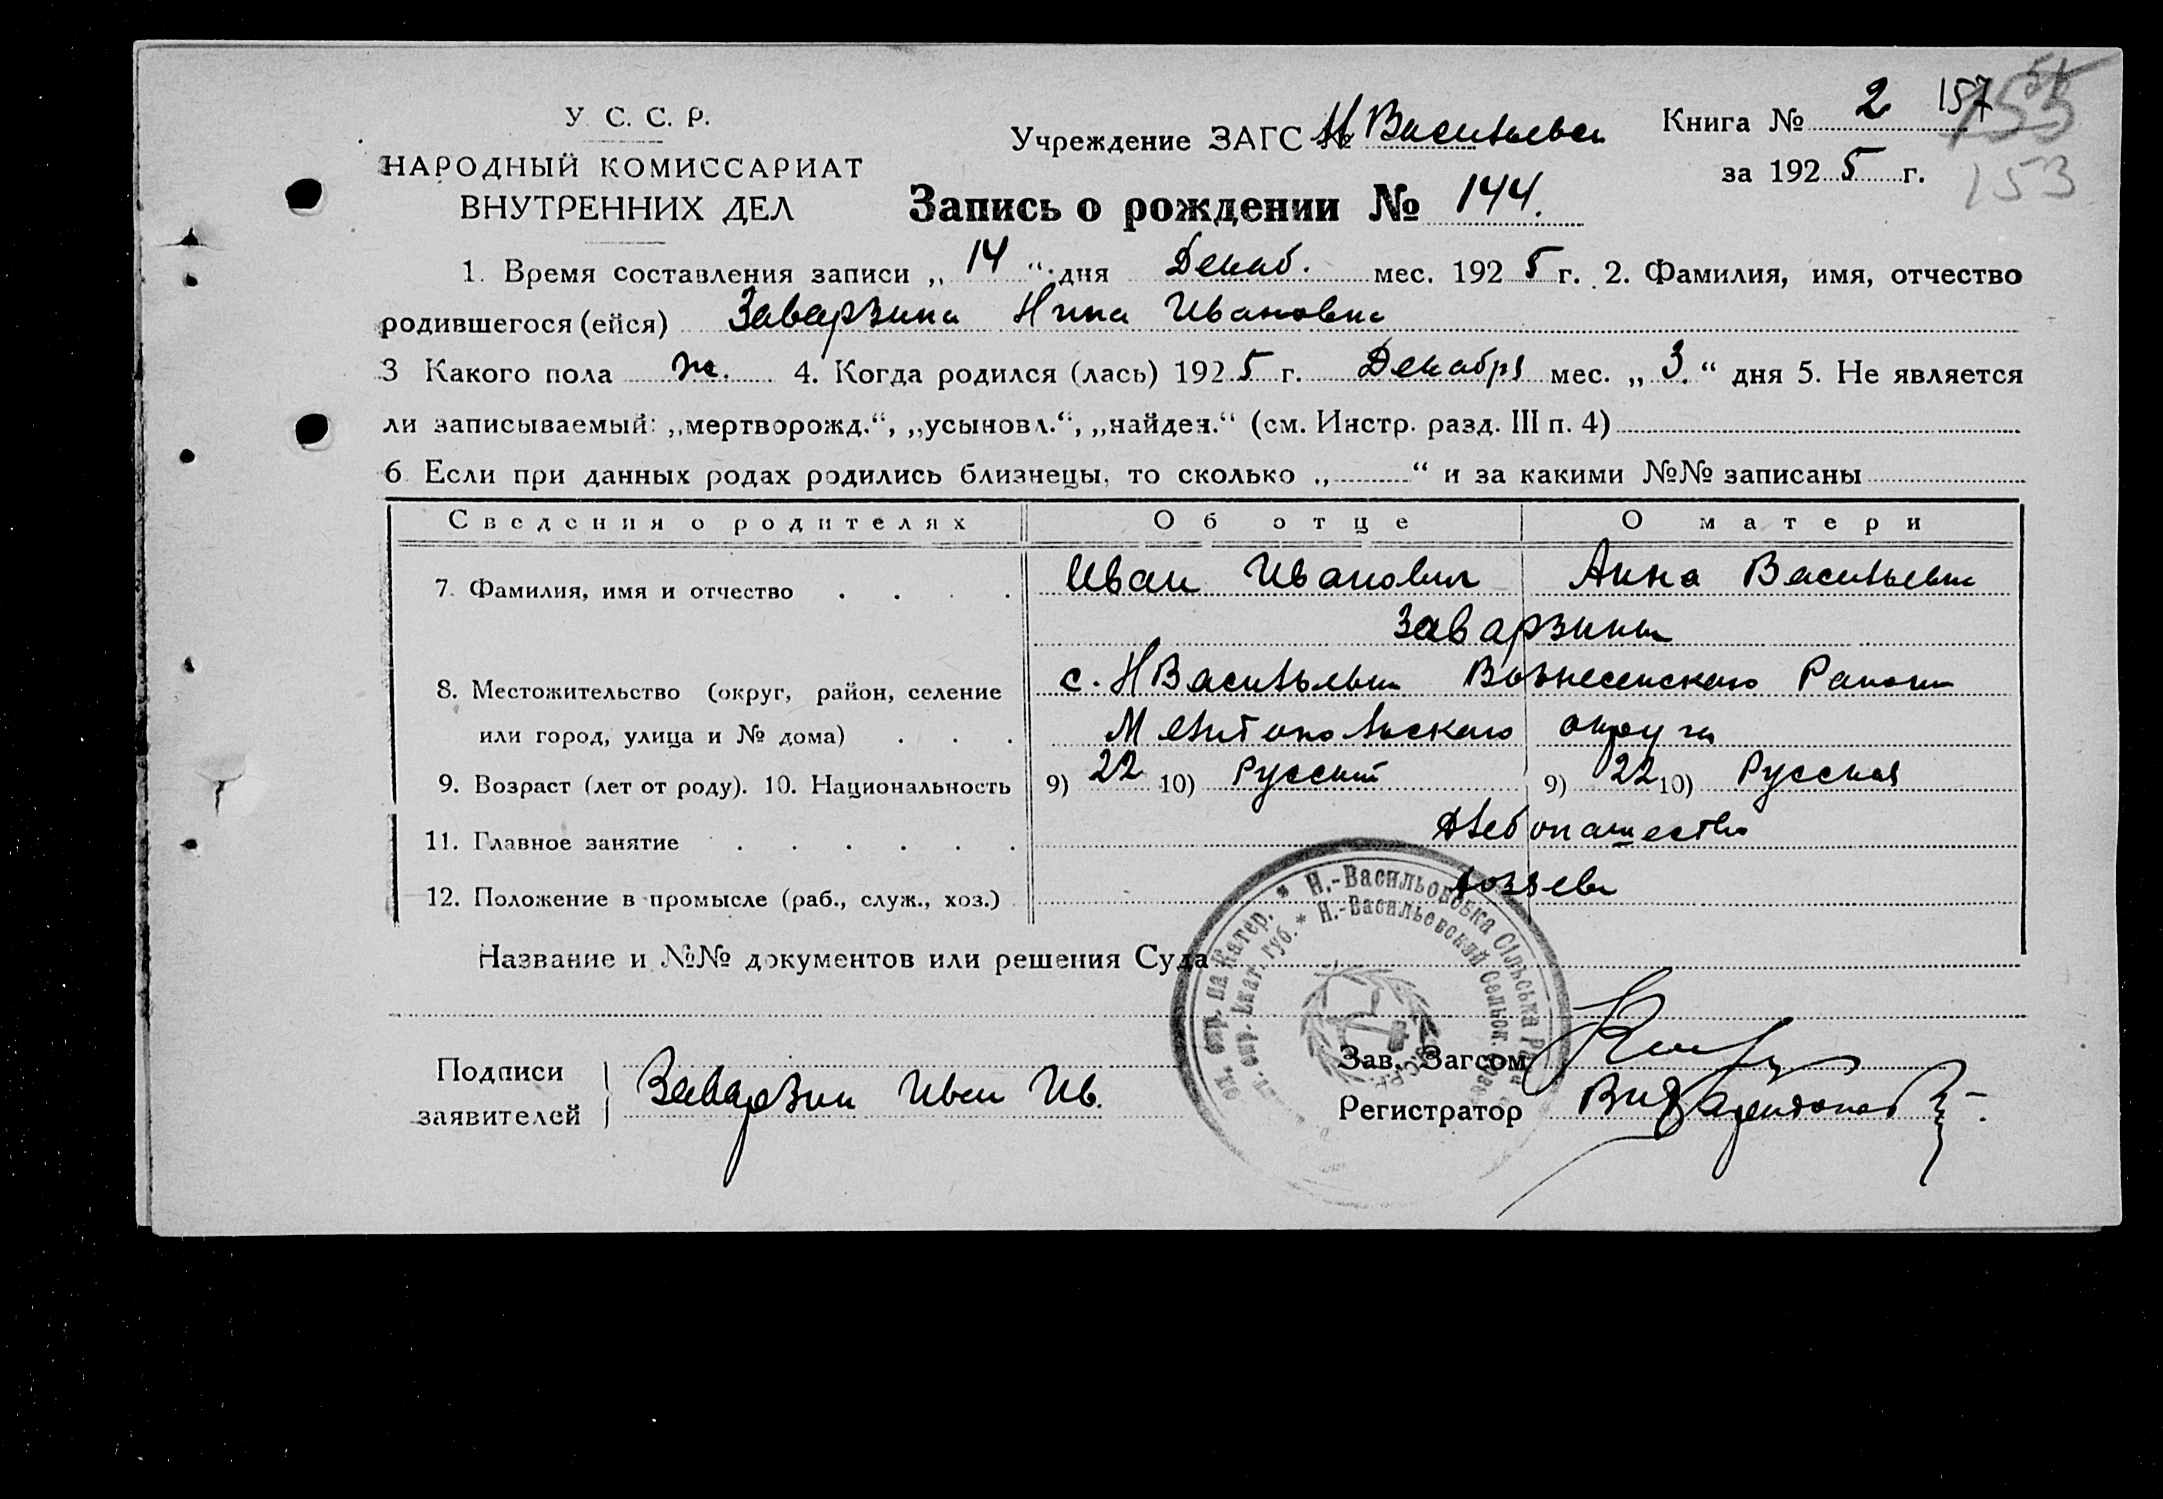 У. С. С. Р.
НАРОДНЫЙ КОМИССАРИАТ
ВНУТРЕННИХ ДЕЛ
Учреждение ЗАГС № Н Васильевка
Книга № 2 157
за 1925 г. 153
Запись о рождении № 144.
1. Время составления записи „ 14 “ дня Декаб. мес. 1925 г. 2. Фамилия, имя, отчество
родившегося (ейся) Заварзина Нина Ивановна
3 Какого пола ж. 4. Когда родился (лась) 1925 г. Декабря мес. „ 3. “ дня 5. Не является
ли записываемый: „мертворожд.“, „усыновл.“, „найден.“ (см. Инстр. разд. III п. 4)
6 Если при данных родах родились близнецы, то сколько „ “ и за какими №№ записаны
Сведения о родителях Об отце О матери
7. Фамилия, имя и отчество . . . . Иван Иванович Анна Васильевна
Заварзины
8. Местожительство (округ, район, селение с. Н Васильевка Вознесенского Района
или город, улица и № дома) . . . Мелитопольского округа
9. Возраст (лет от роду). 10. Национальность 9) 22 10) Русский 9) 22 10) Русская
11. Главное занятие . . . . . . Хлебопашество
12. Положение в промысле (раб., служ., хоз.) хозяева
Н.-Васильовська Сільська
Н.-Васильевский Сельск.
Название и №№ документов или решения Суда
Подписи
заявителей
Заварзин Иван Ив.
Зав. Загсом
Регистратор